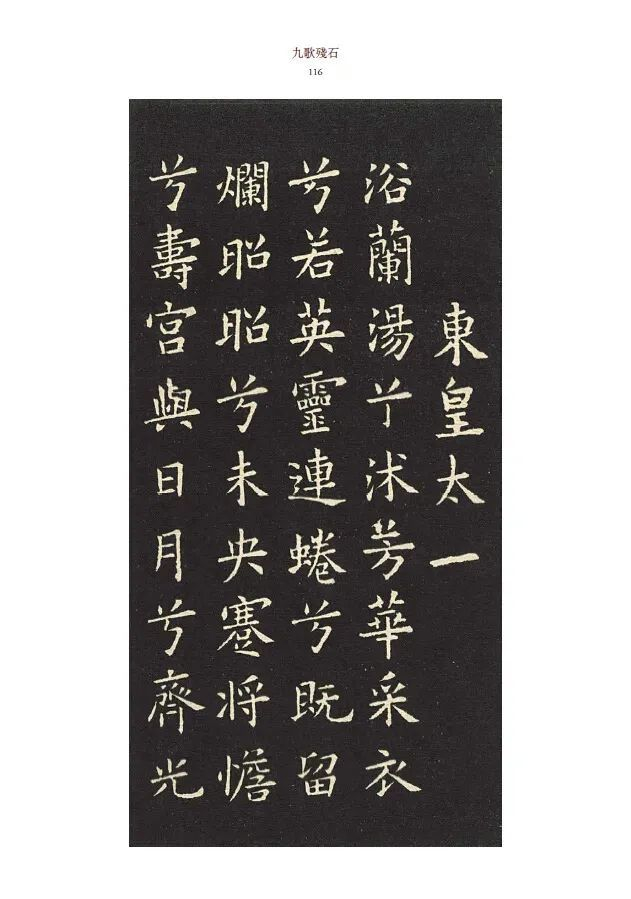 九歌殘石
116
東皇太一
浴蘭湯兮沐芳華采衣
兮若英靈連蜷兮既留
爛昭昭兮未央蹇将憺
兮壽宮與日月兮齊光